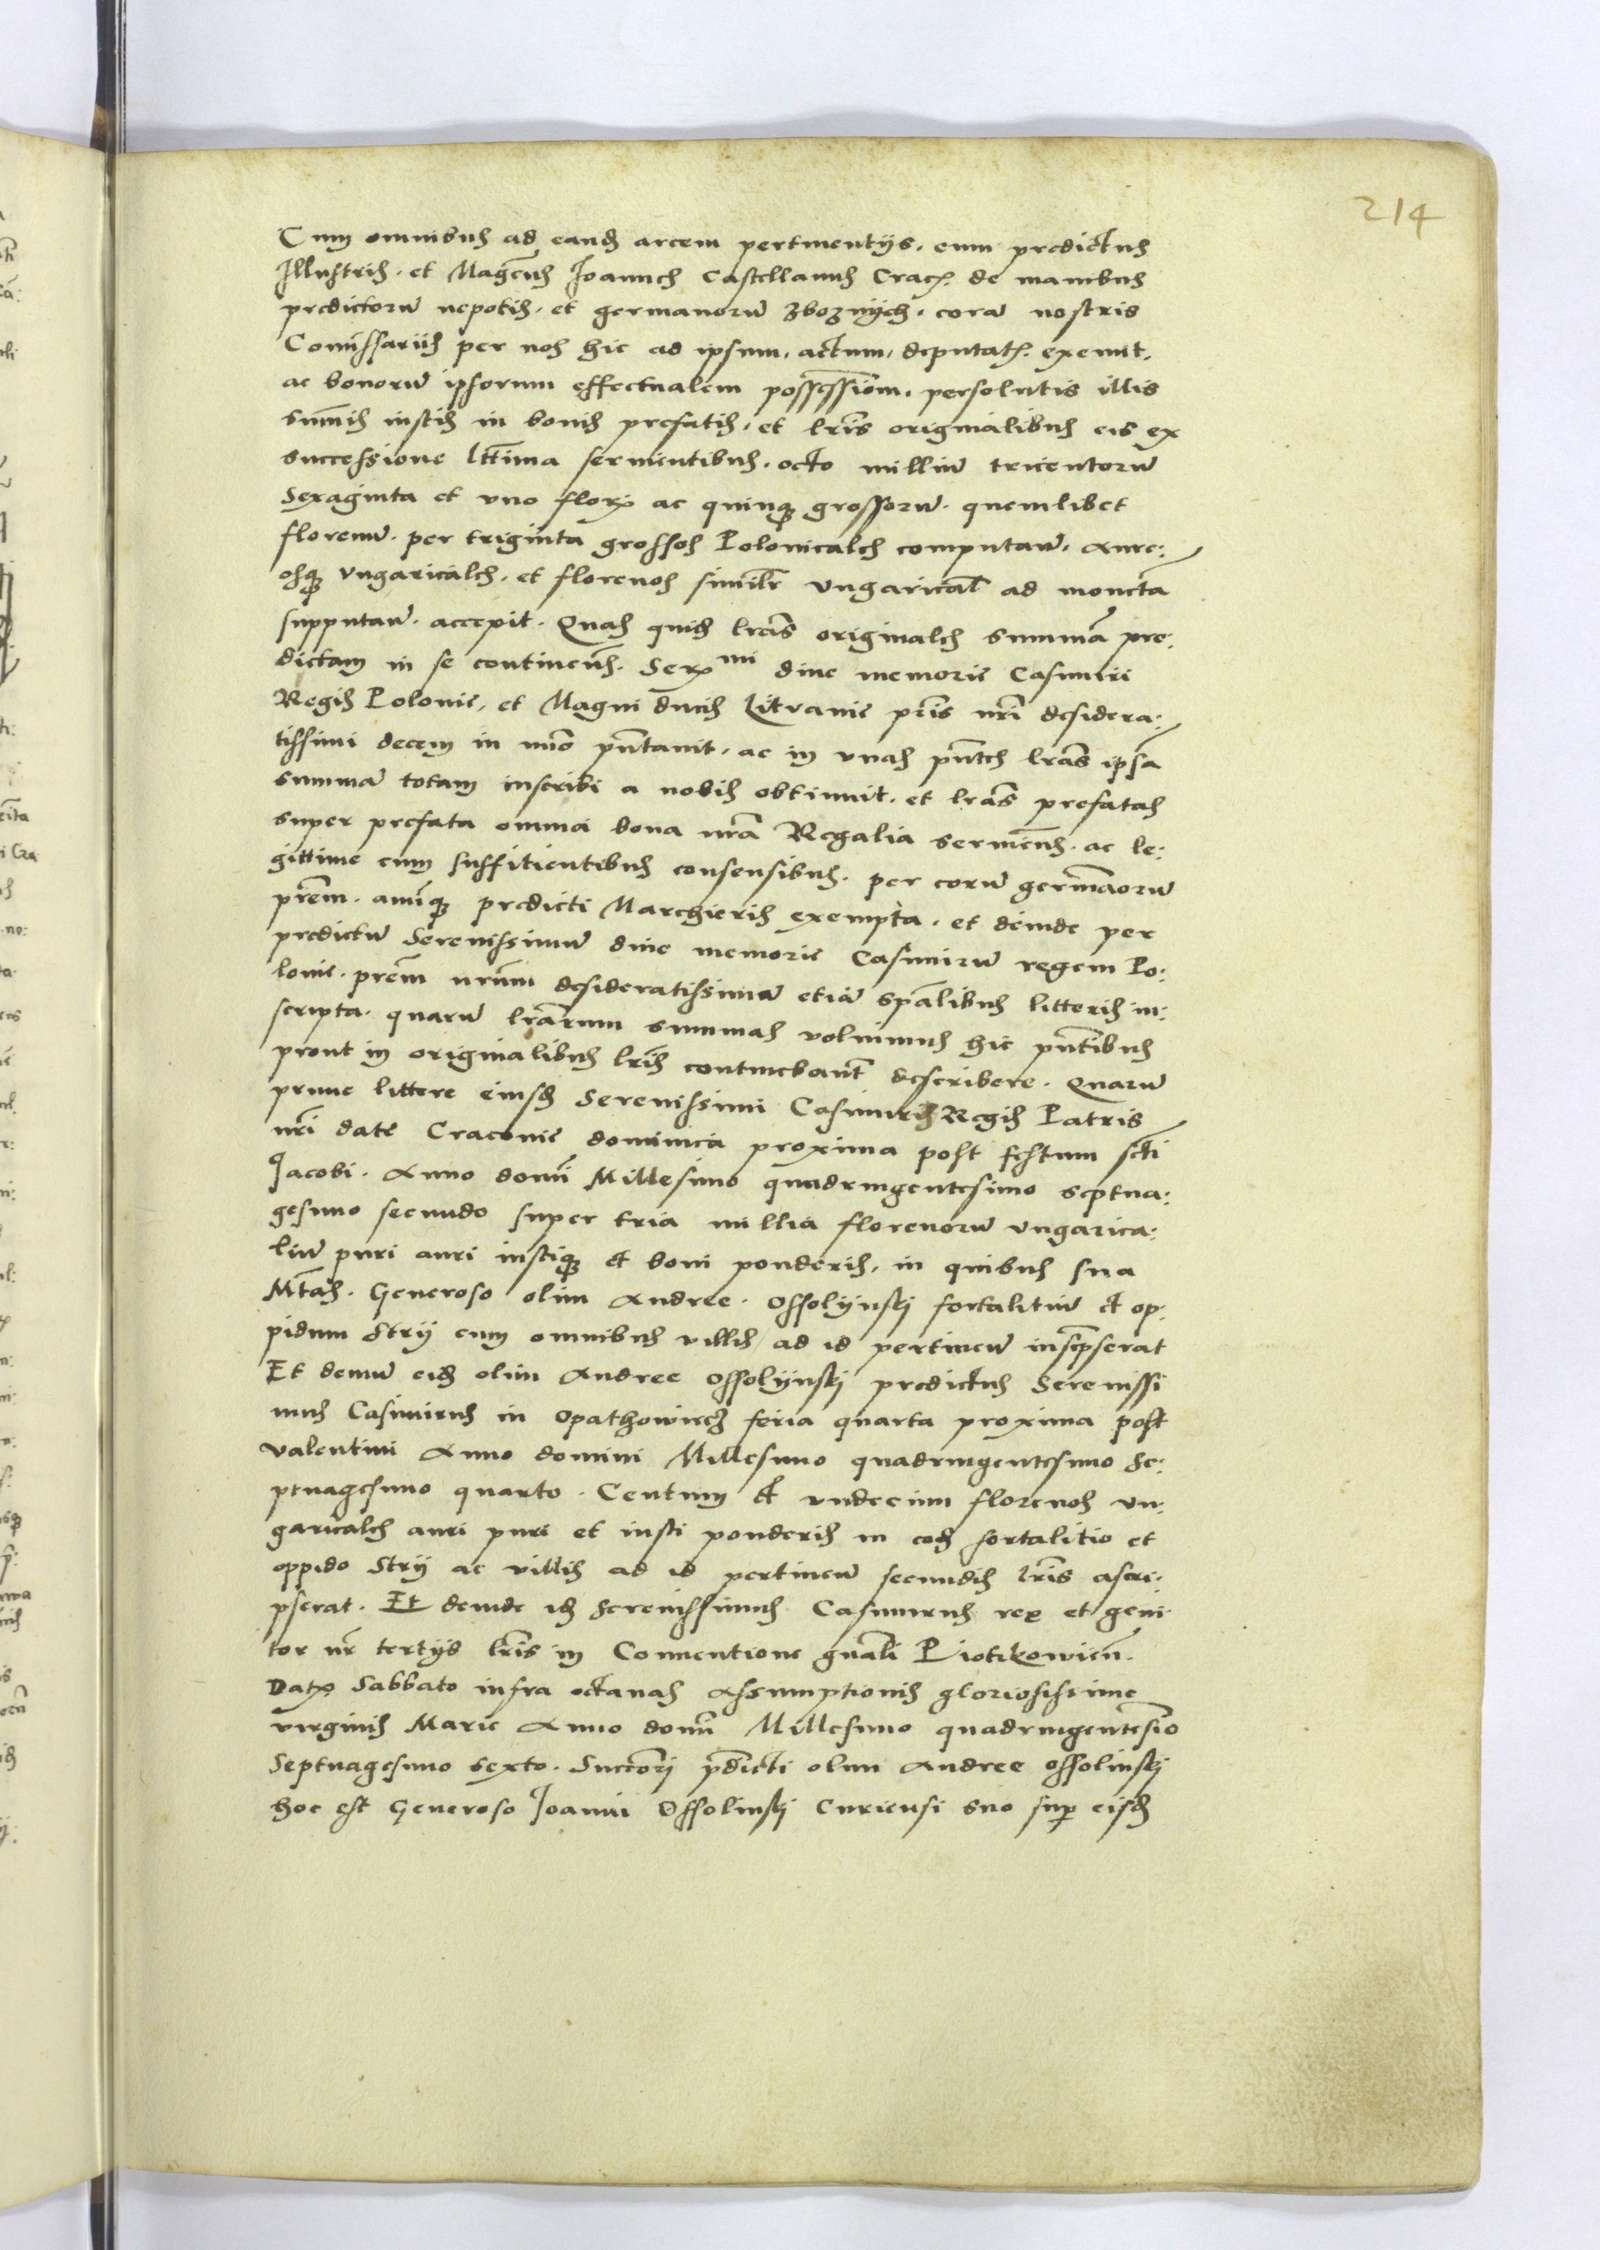 214
Cum omnibus ad eandem arcem pertinentijs, cum predictus
Illustris et Mag̃cus Joannes Castellanus Crac̃. de manibus
predictorũ nepotis et germanorũ Zboznijch, corã nostris
Comissariis per nos hic ad ipsum actum, deputat̃. exemit,
ac bonorũ ipsorum effectualem possessiom̃, persolutis illis
sum̃is iustis in bonis prefatis, et lr̃is originalibus eis ex
successione lt̃tima seruientibus, octo milliũ tricentorũ
Sexaginta et vno florẽ ac quinqꝫ grossorũ, quemlibet
florenũ per triginta grossos Polonicales computañ, aure:
osqꝫ vngaricales, et florenos similr̃ vngarical̃ ad monetã
supputañ. accepit. Quas quidem lr̃as originales summã pre:
dictam in se continen̄s. Ser̃mi diue memorie Casimiri
Regis Polonie, et Magni ducis Lituanie pr̃is nr̃i desidera:
tissimi decem in vno pñtauit, ac in vnas pñtes lr̃as ipsã
summã totam inscribi a nobis obtinuit, et lr̃as prefatas
super prefata omnia bona nr̃a Regalia seruien̄s. ac le:
gittime cum suffitientibus consensibus, per eorũ germãorũ
pr̃em, auũqꝫ predicti Marcgieris exempta, et deinde per
predictũ Serenissimũ diue memorie Casimirũ regem Po:
lonie, pr̃em nr̃um desideratissimũ etiã sp̃alibus litteris in:
scripta, quarũ lr̃arum summas voluimus hic pñtibus
prout in originalibus lr̃is continebant̃ describere. Quarũ
prime littere eiusdem Serenissimi Casimiri Regis Patris
nr̃i date Cracouie dominica proxima post festum scti
Jacobi. Anno domĩ Millesimo quadringentesimo septua:
gesimo secundo super tria millia florenorũ vngarica:
liũ puri auri iustiqꝫ et boni ponderis, in quibus sua
Mt̃as. Generoso olim Andree Ossolijnskj fortalitiũ et op:
pidum Strij cum omnibus villis ad id pertineñ inscrpserat
Et demũ eidem olim Andree Ossolijnskj predictus Serenissi
mus Casimirus in Opathowiecz feria quarta proxima post
valentini Anno domini Millesimo quadringentesimo Se:
ptuagesimo quarto. Centum et vndecim florenos vn:
garicales auri puri et iusti ponderis in eodem fortalitio et
oppido Strij ac villis ad id pertineñ secundis lr̃is ascri:
pserat. Et deinde idem Serenissimus Casimirus rex et geni
tor nr̃ tertijs lr̃is in Conuentione gñali Piotrkowien̄.
Datꝫ Sabbato infra octauas Assumptionis gloriosissime
virginis Marie Anno domĩ Millesimo quadringentesim̃o
Septuagesimo sexto. Succ̃ori p̃dicti olim Andree Ossolinskj
hoc est Generoso Joanni Ossolinskj Curiensi suo sup̃ eisdem